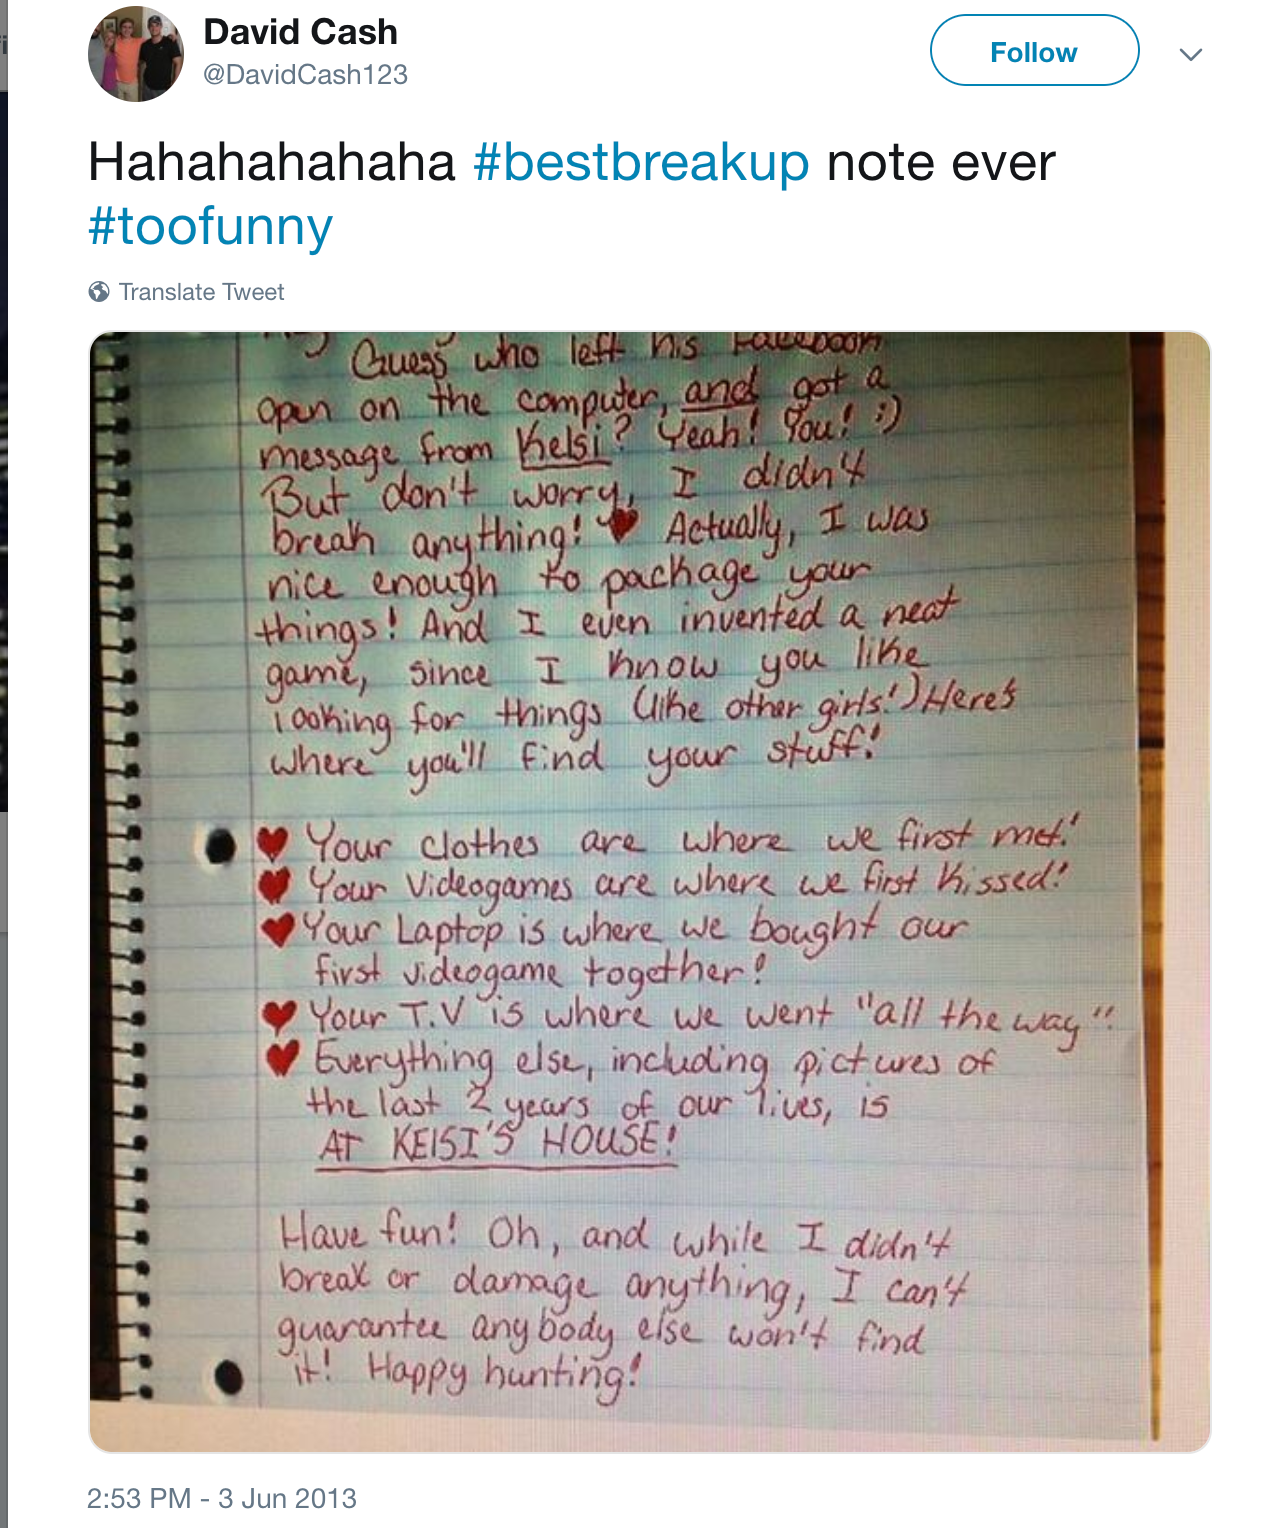 David Cash
@DavidCash123
Follow
Hahahahahaha #bestbreakup note ever
#toofunny
Translate Tweet
Guess who left his Facebook
open on the computer, and got a
message from Kelsi? Yeah! You! :)
But don't worry, I didn't
break anything! Actually, I was
nice enough to package your
things! And I even invented a neat
game, since I know you like
looking for things (like other girls!) Here's
where you'll find your stuff!
Your clothes are where we first met!
Your Videogames are where we first kissed!
Your Laptop is where we bought our
first videogame together!
Your T.V is where we went "all the way"!
Everything else, including pictures of
the last 2 years of our lives, is
AT KElSI'S HOUSE!
Have fun! Oh, and while I didn't
break or damage anything, I can't
guarantee anybody else won't find
it! Happy hunting!
2:53 PM - 3 Jun 2013